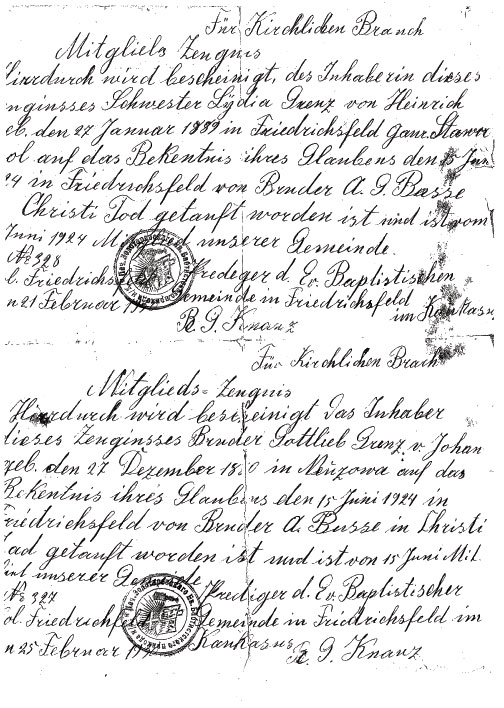 Für Kirchlichen Branch
Mitglieds Zengnis
Hirrdurch wird bescheinigt, des Inhaberin dieses
nginsses Schwester Lÿdia Grenz von Heinrich
eb. den 27 Januar 1889 in Friedrichsfeld Gouv. Stawr
ol auf das Bekentnis ihres Glaubens den 15 Jun
24 in Friedrichsfeld von Bruder A. G. Basse
Christi Tod getauft worden ist und ist vom
Juni 1924 unserer Gemeinde.
№ 328
l. Friedrichs Prediger d. Ev. Baptistischen
n 21 Februar Gemeinde in Friedrichsfeld
im Kaukasu
R. G. Knauz
Für Kirchlichen Brach
Mitglieds-Zengnis
Hirrdurch wird bescheinigt das Inhaber
dieses Zenginsses Bruder Gottlieb Grenz v. Johan
geb. den 27 Dezember in Neuzowa auf das
Bekentnis ihres Glaubens den 15 Juni 1924 in
Friedrichsfeld von Bruder A. Busse in Christi
Tad getauft worden ist und ist von 15 Juni Mit.
unserer
№ 327 Prediger d. Ev. Baptistischer
ol. Friedrichsfeld Gemeinde in Friedrichsfeld im
n 25 Februar Kaukasus
R. G. Knauz